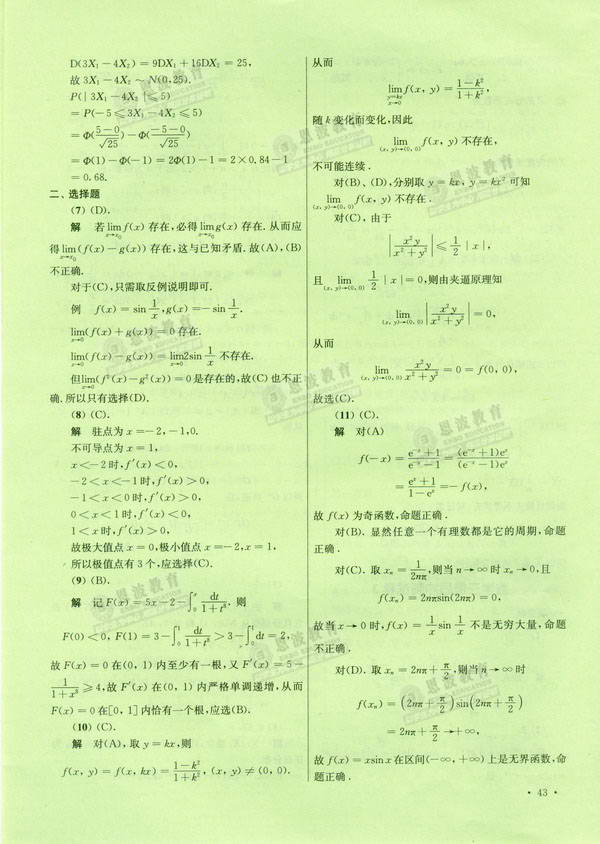 D(3X₁－4X₂)＝9DX₁＋16DX₂＝25,
故 3X₁－4X₂～N(0,25).
P(|3X₁－4X₂|≤5)
＝P(－5≤3X₁－4X₂≤5)
＝Φ((5－0)/√25)－Φ((－5－0)/√25)
＝Φ(1)－Φ(－1)＝2Φ(1)－1＝2×0.84－1
＝0.68.
二、选择题
(7) (D).
解 若lim_{x→x₀} f(x)存在,必得lim_{x→x₀} g(x)存在.从而应
得lim_{x→x₀}(f(x)－g(x))存在,这与已知矛盾.故(A),(B)
不正确.
对于(C),只需取反例说明即可.
例 f(x)＝sin 1/x, g(x)＝－sin 1/x.
lim_{x→0}(f(x)＋g(x))＝0存在.
lim_{x→0}(f(x)－g(x))＝lim_{x→0}2sin 1/x 不存在.
但lim_{x→0}(f²(x)－g²(x))＝0是存在的,故(C)也不正
确.所以只有选择(D).
(8) (C).
解 驻点为x＝－2,－1,0.
不可导点为x＝1.
x＜－2时,f′(x)＜0,
－2＜x＜－1时,f′(x)＞0,
－1＜x＜0时,f′(x)＞0,
0＜x＜1时,f′(x)＜0,
1＜x时,f′(x)＞0,
故极大值点x＝0,极小值点x＝－2,x＝1,
所以极值点有3个,应选择(C).
(9) (B).
解 记F(x)＝5x－2－∫₀ˣ dt/(1＋t⁸). 则
F(0)＜0, F(1)＝3－∫₀¹ dt/(1＋t⁸)＞3－∫₀¹ dt＝2,
故F(x)＝0在(0, 1)内至少有一根,又F′(x)＝5－
1/(1＋x⁸)≥4,故F′(x)在(0, 1)内严格单调递增,从而
F(x)＝0在[0, 1]内恰有一个根,应选(B).
(10) (C).
解 对(A),取y＝kx,则
f(x, y)＝f(x, kx)＝(1－k²)/(1＋k²), (x, y)≠(0, 0).
从而
lim_{y＝kx, x→0} f(x, y)＝(1－k²)/(1＋k²)
随k变化而变化,因此
lim_{(x, y)→(0, 0)} f(x, y)不存在,
不可能连续.
对(B)、(D),分别取y＝kx, y＝kx²可知
lim_{(x, y)→(0, 0)} f(x, y)不存在.
对(C),由于
|x²y/(x²＋y²)|≤1/2|x|,
且 lim_{(x, y)→(0, 0)} 1/2|x|＝0,则由夹逼原理知
lim_{(x, y)→(0, 0)} |x²y/(x²＋y²)|＝0,
从而
lim_{(x, y)→(0, 0)} x²y/(x²＋y²)＝0＝f(0, 0),
故选(C).
(11) (C).
解 对(A)
f(－x)＝(e⁻ˣ＋1)/(e⁻ˣ－1)＝(e⁻ˣ＋1)eˣ/(e⁻ˣ－1)eˣ
＝(eˣ＋1)/(1－eˣ)＝－f(x),
故f(x)为奇函数,命题正确.
对(B).显然任意一个有理数都是它的周期,命题
正确.
对(C).取xₙ＝1/(2nπ),则当n→∞时xₙ→0,且
f(xₙ)＝2nπsin(2nπ)＝0,
故当x→0时,f(x)＝1/x sin 1/x 不是无穷大量,命题
不正确.
对(D).取xₙ＝2nπ＋π/2,则当n→∞时
f(xₙ)＝(2nπ＋π/2)sin(2nπ＋π/2)
＝2nπ＋π/2→＋∞,
故f(x)＝xsinx在区间(－∞,＋∞)上是无界函数,命
题正确.
· 43 ·
恩波教育
恩波教育
恩波教育
恩波教育
恩波教育
恩波教育